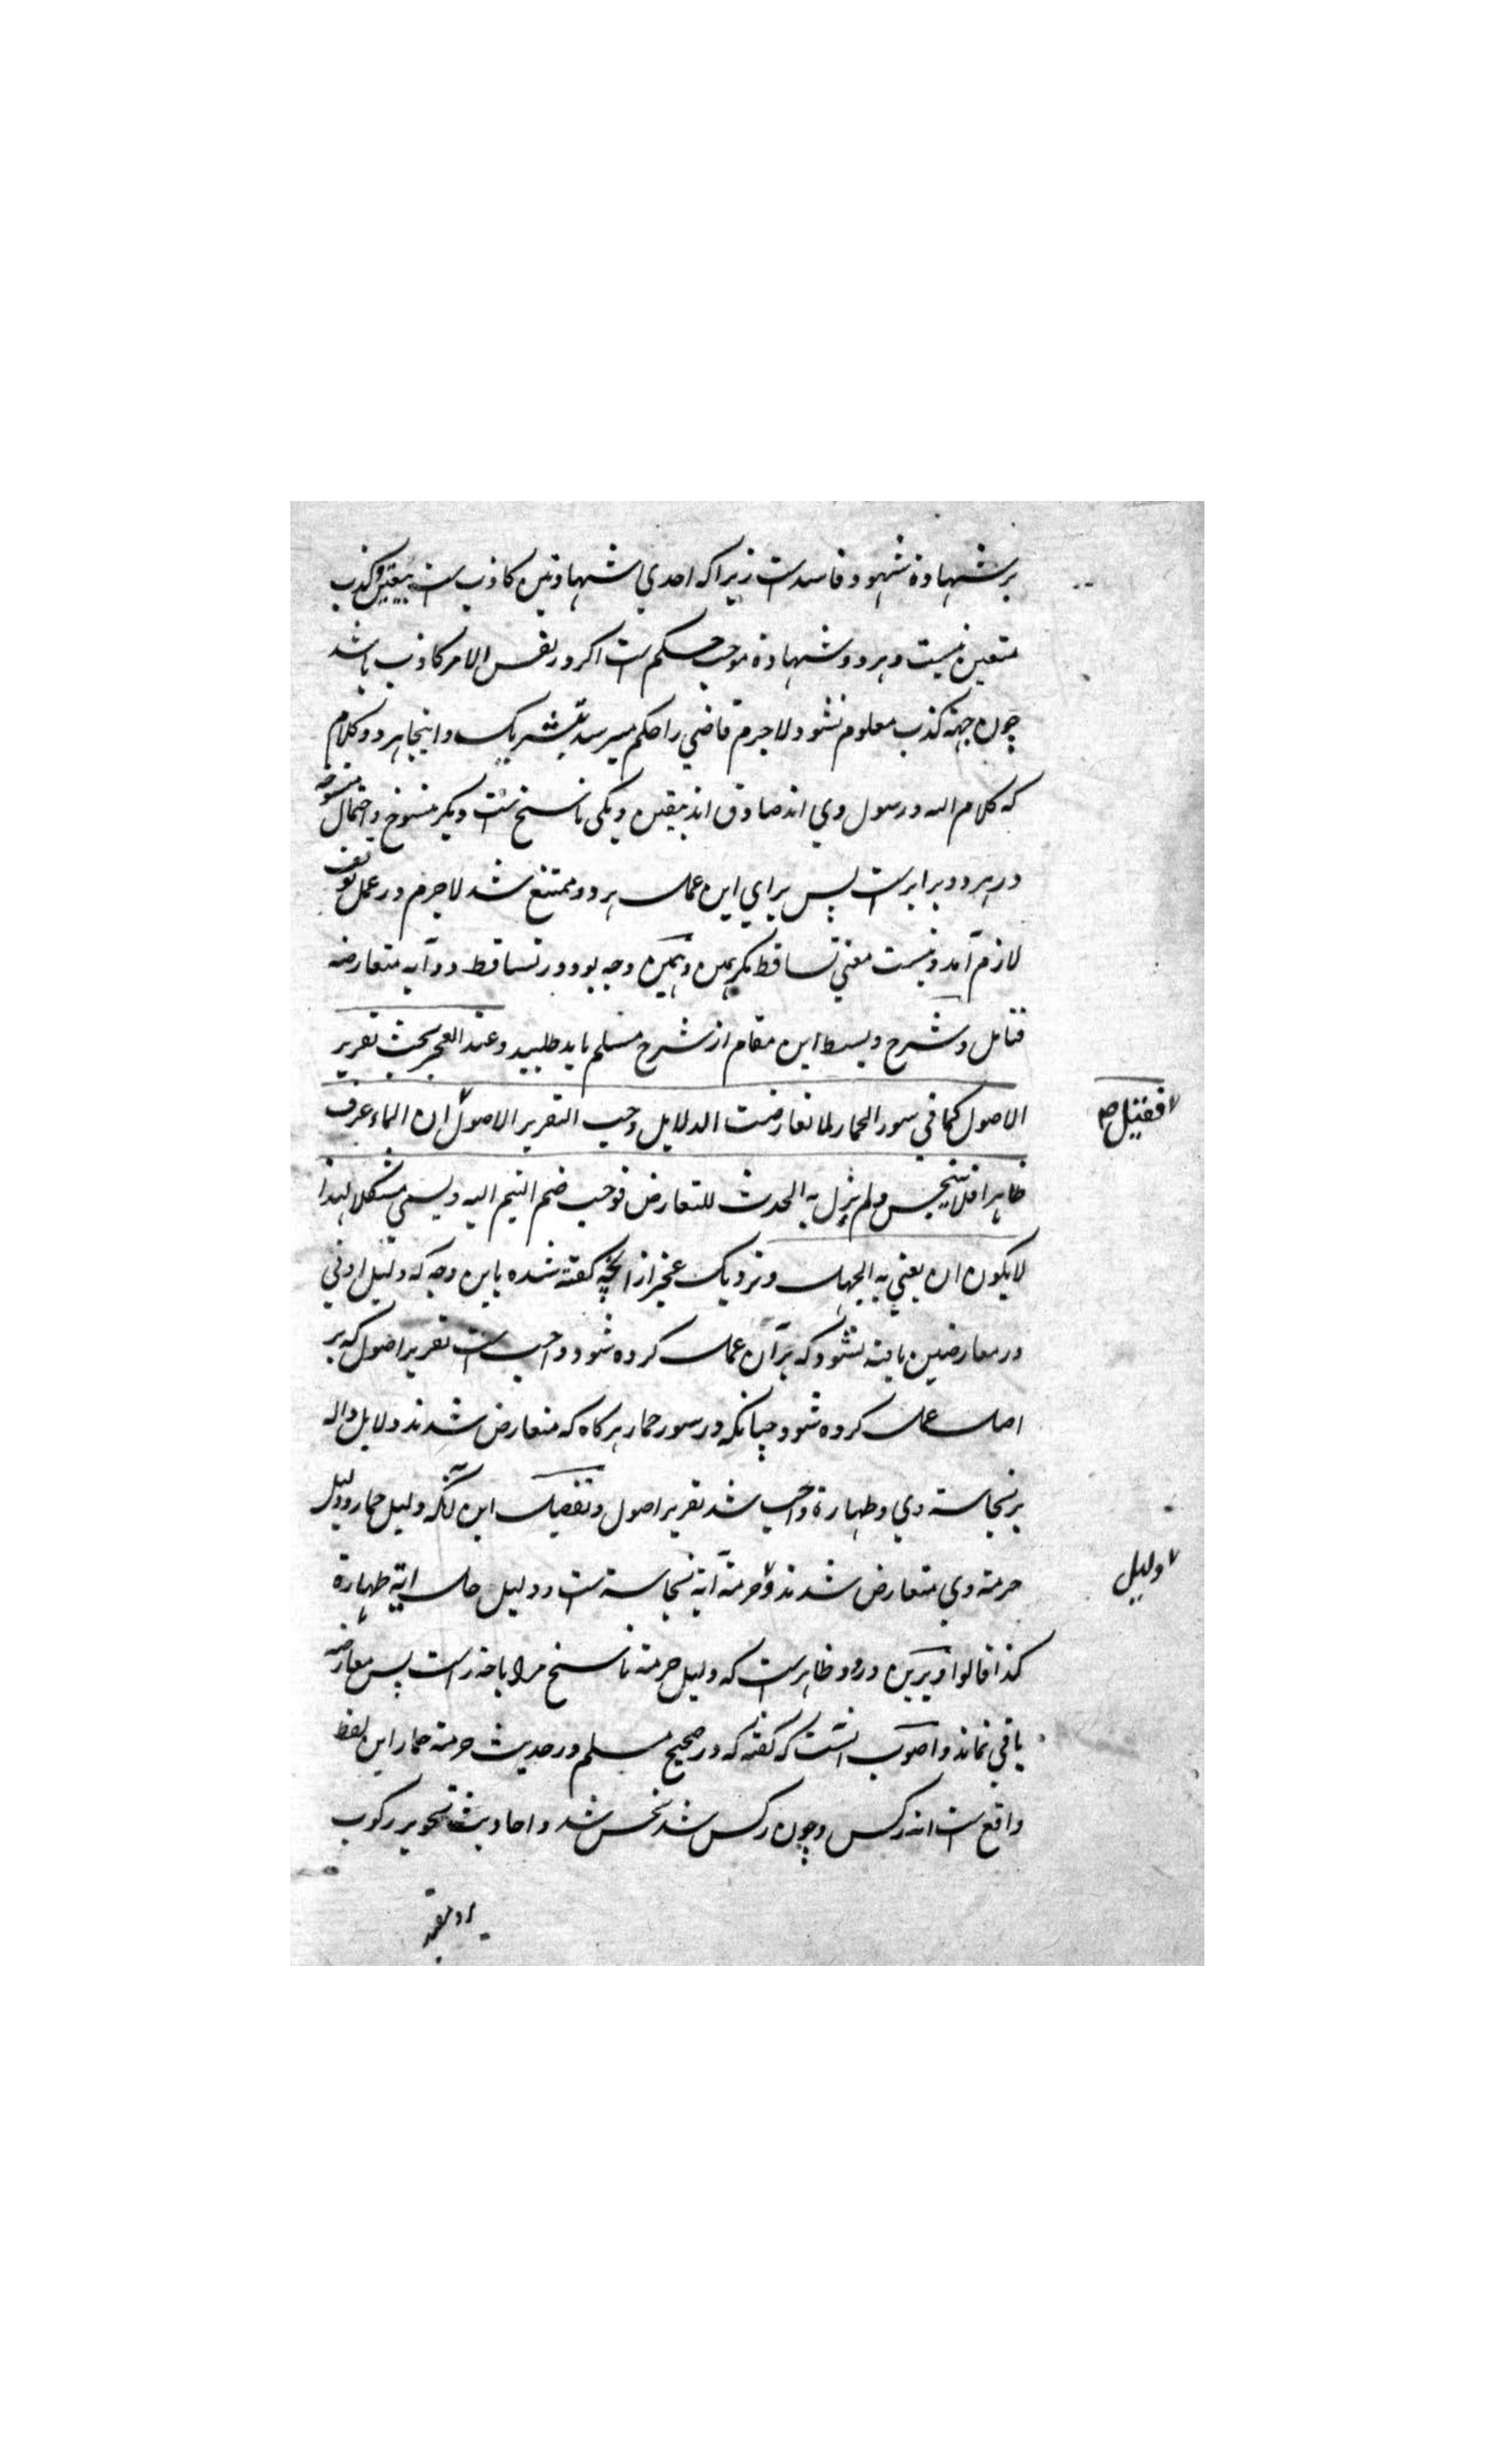 بر شهادة شهود فاسد است زیرا که احدي شهادتین کاذب است بیقین و کذب
متعین نیست و هر دو شهادة موجب حکم است اکر در نفس الامر کاذب باشد
چون جهة کذب معلوم نشود لاجرم قاضي را حکم میرسد بتشریک و اینجا هر دو کلام
که کلام الله و رسول وي اند صادق اند بیقین و یکی ناسخ است و دیکر منسوخ و احتمال منسوخیة
در هر دو برابر است پس براي این عمل بهر دو ممتنع شد لاجرم در عمل توقف
لازم آمد و نیست معني تساقط مکر همین و همین وجه بود در تساقط دو آیه متعارضه
فتامل و شرح و بسط این مقام از شرح مسلم باید طلبید وعند العجز یجب تقریر
الاصول کما في سور الحمار لما تعارضت الدلایل وجب التقریر الاصول ان الماء عرف
فقیل ص
طاهرا فلا یتنجس ولم یزل به الحدث للتعارض فوجب ضم التیم الیه ویسمي مشکلا لهذا
لا یکون ان یعني به الجهل و نزدیک عجز از انچه کفته شده باین وجه که دلیل ادني
در معارضین یافته نشود که بر آن عمل کرده شود واجب است تقریر اصول که بر
اصل عمل کرده شود چنانکه در سور حمار هر کاه که متعارض شدند دلایل داله
بر نجاسة وي و طهارة واجب شد تقریر اصول و تفصیل این آنکه دلیل حل حمار و دلیل
حرمة وي متعارض شدند و حرمة آیة نجاسة است و دلیل حل ایة طهارة
دلیل
کذا قالوا و برین درود ظاهر است که دلیل حرمة ناسخ مر اباحة را است پس معارضه
باقي نماند و اصوب انست که کفته که در صحیح مسلم در حدیث حرمة حمار این لفظ
واقع است انه رکس و چون رکس شد نجس شد و احادیث تجویز رکوب